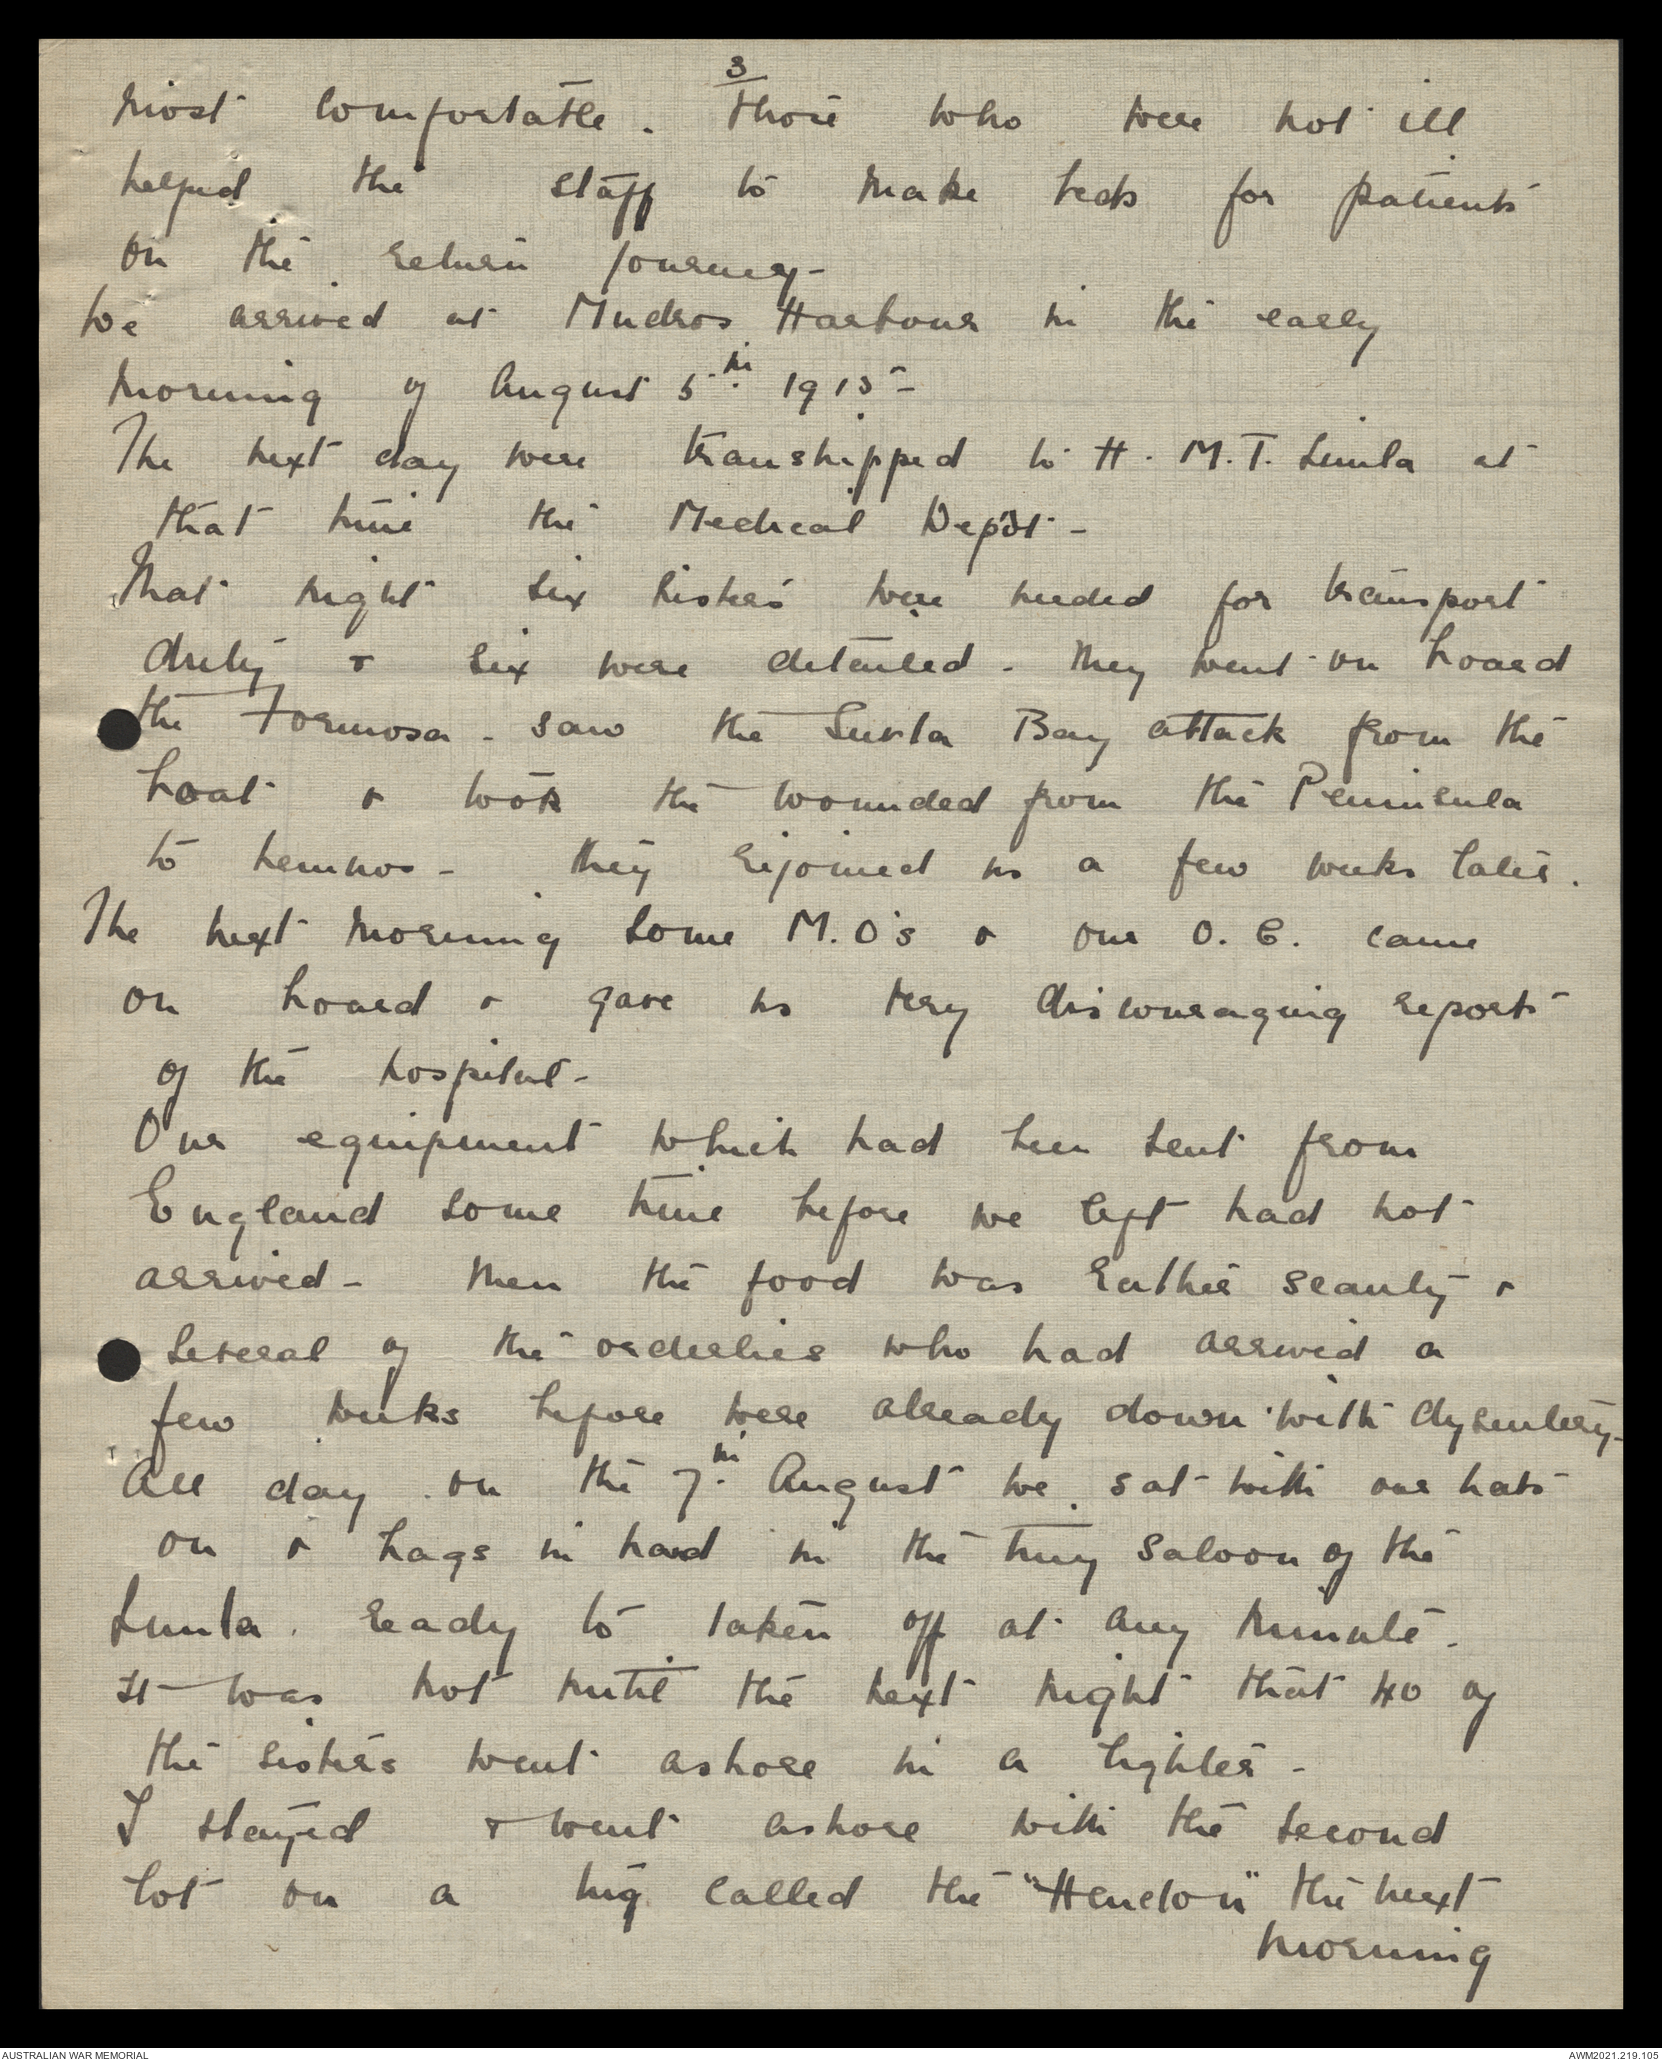 3
most comfortable. Those who were not ill
helped the staff to make beds for patients
on the return journey -
We arrived at Mudros Harbour in the early
morning of August 5th 1915 -
The next day were transhipped to H. M. T. Simla at
that time the Medical Depôt -
That night six sisters were needed for transport
duty & six were detailed - They went on board
the Formosa - saw the Suvla Bay attack from the
boat & took the wounded from the Peninsula
to Lemnos - they rejoined us a few weeks later.
The next morning some M.O's & our O. C. came
on board & gave us very discouraging reports
of the hospital -
Our equipment which had been sent from
England some time before we left had not
arrived - Then the food was rather scanty &
several of the orderlies who had arrived a
few weeks before were already down with dysentery -
All day on the 7th August we sat with our hats
on & bags in hand in the tiny saloon of the
Simla. ready to taken off at any minute.
It was not until the next night that 40 of
the sisters went ashore in a lighter -
I stayed & went ashore with the second
lot on a tug called the "Hendon" the next
morning
AUSTRALIAN WAR MEMORIAL
AWM2021.219.105